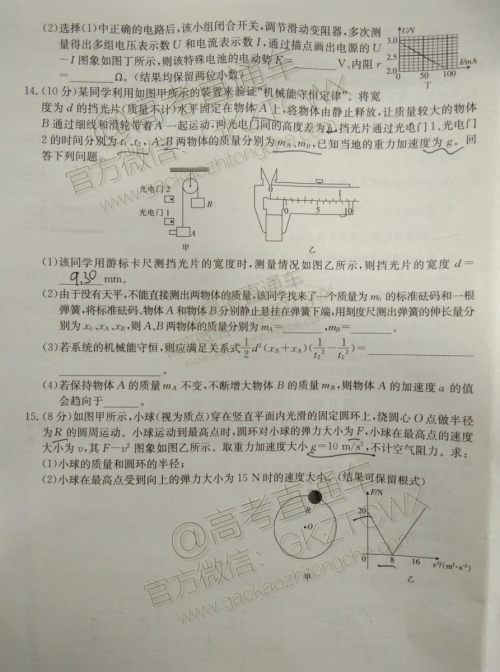 (2)选择(1)中正确的电路后,该小组闭合开关,调节滑动变阻器,多次测
量得出多组电压表示数U和电流表示数I,通过描点画出电源的U
—I图象如图丁所示,则该特殊电池的电动势E=______V、内阻r
=______Ω。(结果均保留两位小数)
U/V
3.0
2.5
2.0
0 50 100 I/mA
丁
14.(10分)某同学利用如图甲所示的装置来验证“机械能守恒定律”。将宽
度为d的挡光片(质量不计)水平固定在物体A上,将物体由静止释放,让质量较大的物体
B通过细线和滑轮带着A一起运动,两光电门间的高度差为h,挡光片通过光电门1、光电门
2的时间分别为t₁、t₂,A、B两物体的质量分别为mA、mB,已知当地的重力加速度为g。回
答下列问题。
光电门2
光电门1
B
A
甲
0 1
0 5 10
乙
(1)该同学用游标卡尺测挡光片的宽度时,测量情况如图乙所示,则挡光片的宽度d=
9.30 mm。
(2)由于没有天平,不能直接测出两物体的质量,该同学找来了一个质量为m₀的标准砝码和一根
弹簧,将标准砝码、物体A和物体B分别静止悬挂在弹簧下端,用刻度尺测出弹簧的伸长量分
别为x₀、xA、xB,则A、B两物体的质量分别为mA=______,mB=______。
(3)若系统的机械能守恒,则应满足关系式½d²(xB+xA)(1/t₂²−1/t₁²)=______
______。
(4)若保持物体A的质量mA不变,不断增大物体B的质量mB,则物体A的加速度a的值
会趋向于______。
15.(8分)如图甲所示,小球(视为质点)穿在竖直平面内光滑的固定圆环上,绕圆心O点做半径
为R的圆周运动。小球运动到最高点时,圆环对小球的弹力大小为F,小球在最高点的速度
大小为v,其F—v²图象如图乙所示。取重力加速度大小g=10 m/s²,不计空气阻力。求:
(1)小球的质量和圆环的半径;
(2)小球在最高点受到向上的弹力大小为15 N时的速度大小。(结果可保留根式)
R
O
甲
F/N
20
0 8 16 v²/(m²·s⁻²)
乙
@高考直通车
官方微信:GKZTCWX
www.gaokaozhitongche.com